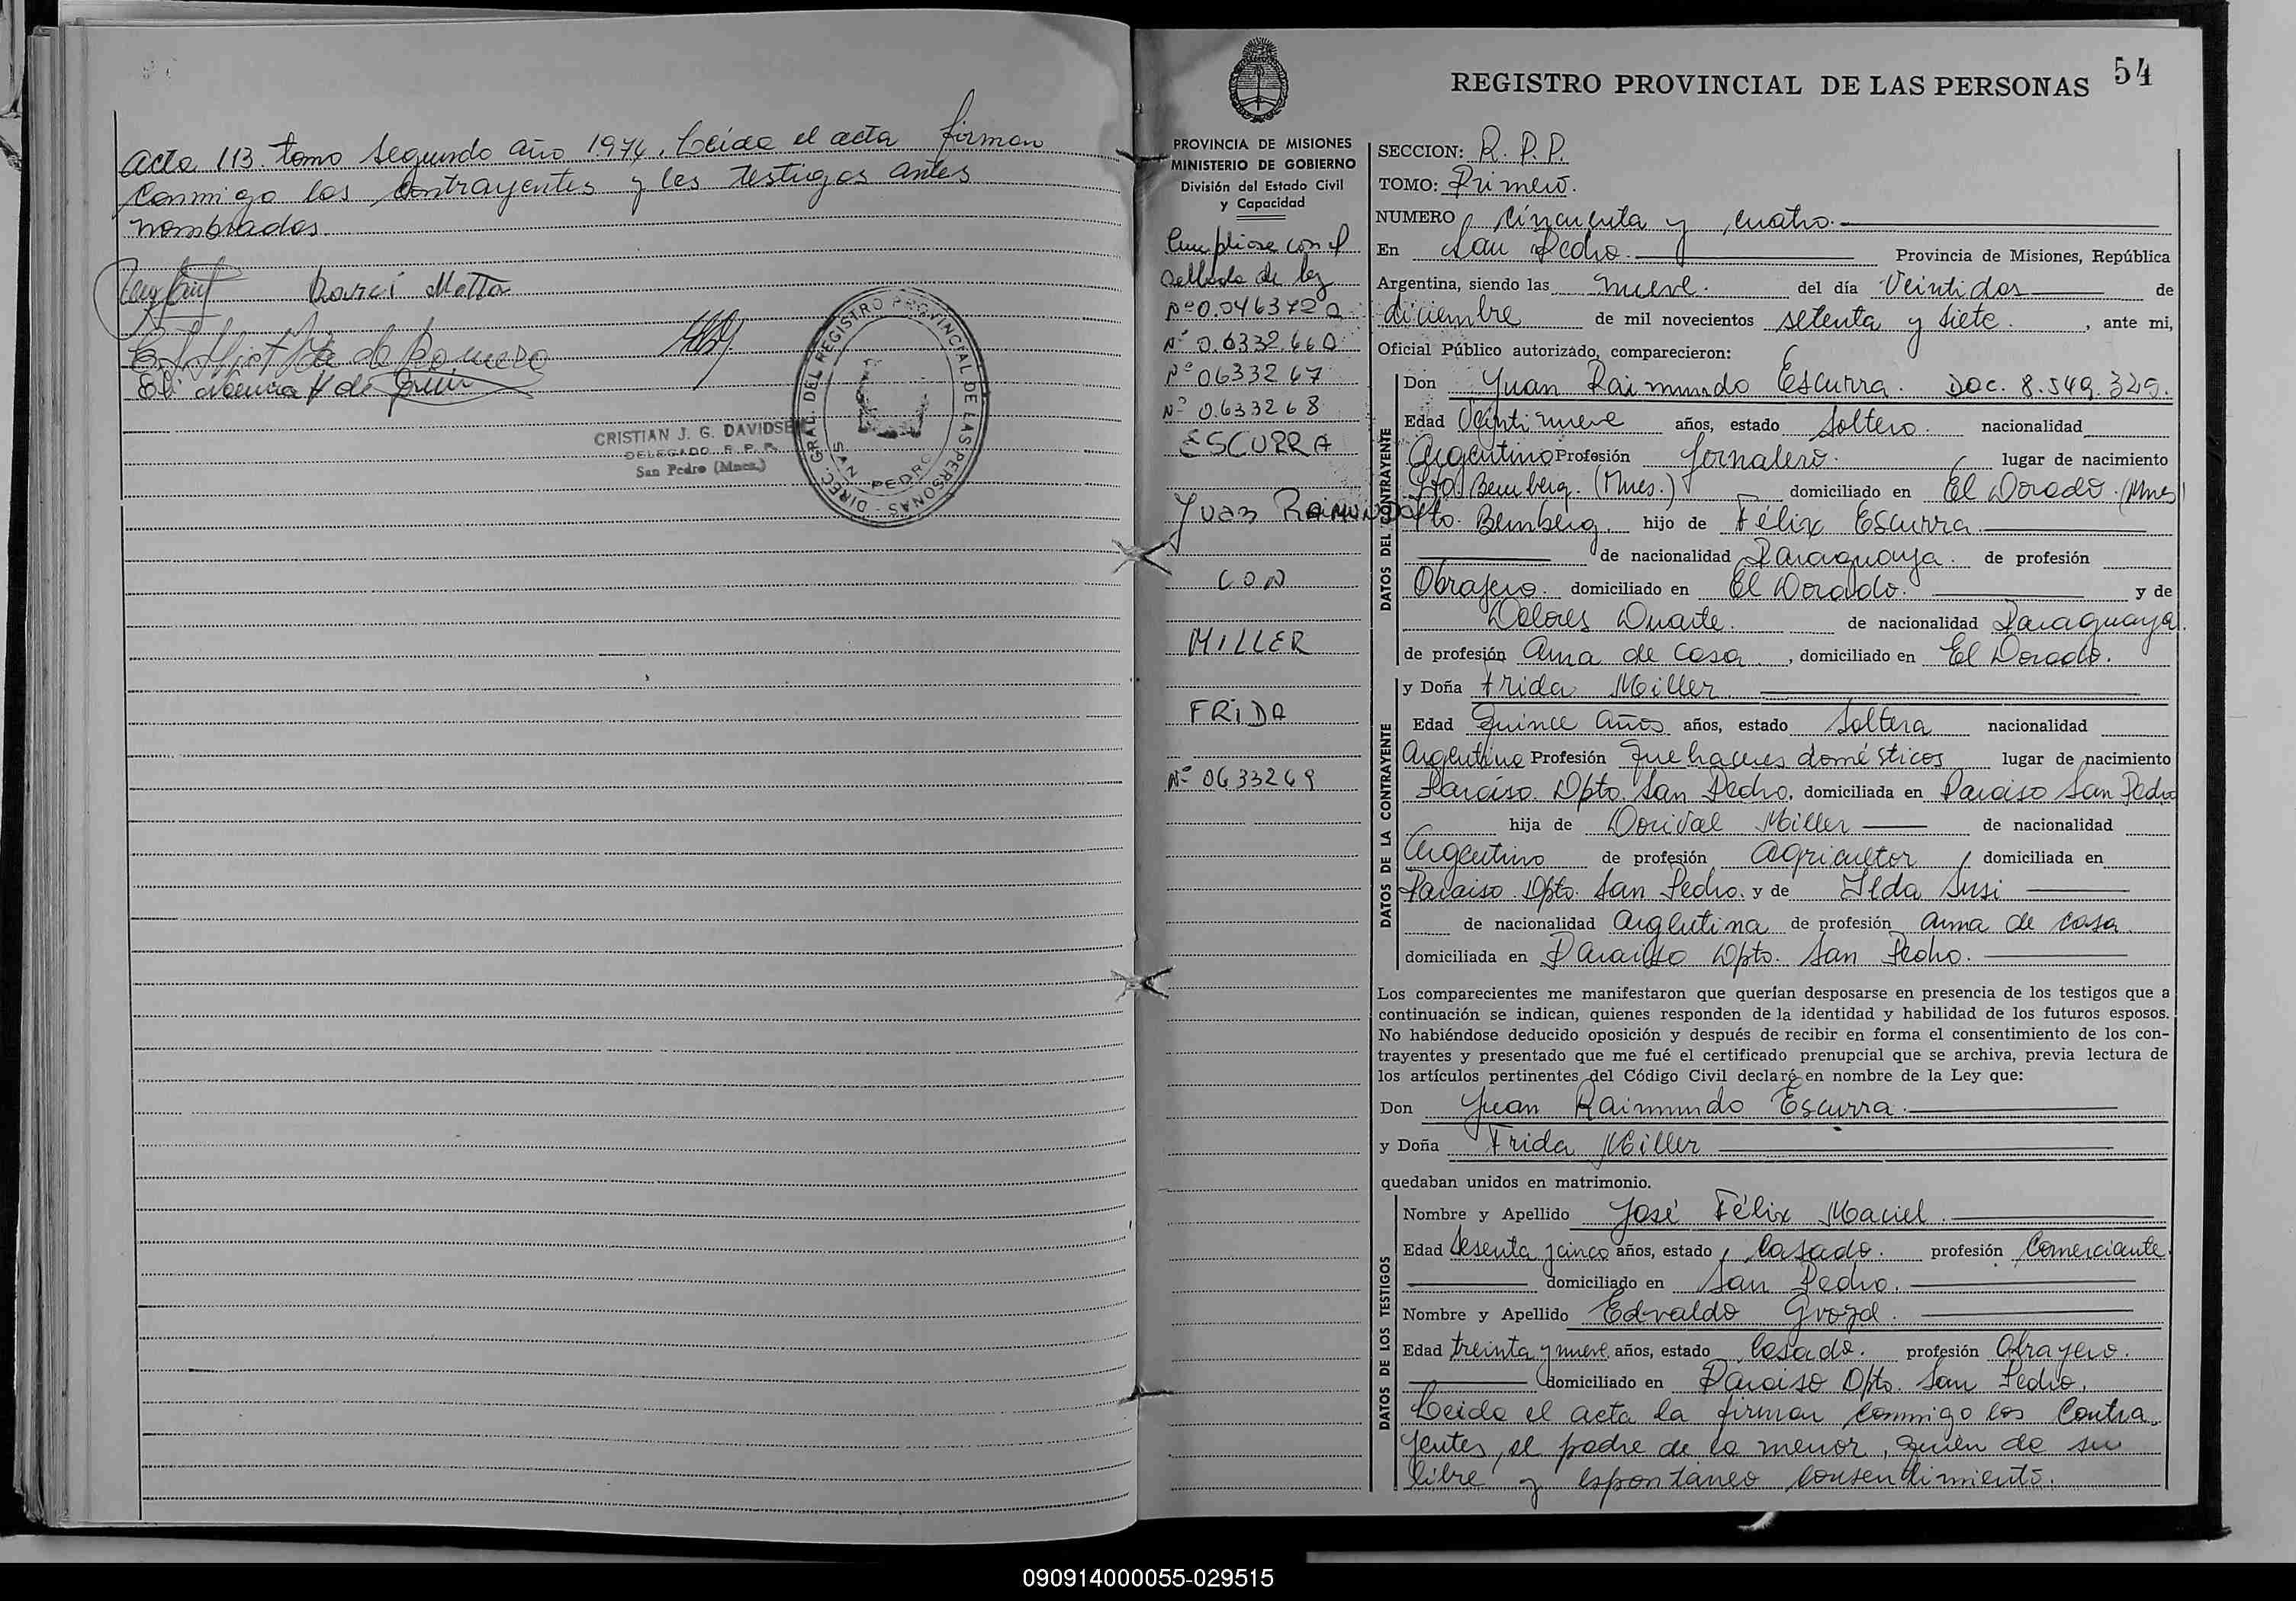 Acta 113. tomo segundo año 1974. Leída el acta firman
conmigo los contrayentes y los testigos antes
nombrados.
Darci Motta
de Romero
CRISTIAN J. G. DAVIDSE
DELEGADO R. P. P.
San Pedro (Mnes.)
DIREC. GRAL. DEL REGISTRO PROVINCIAL DE LAS PERSONAS
SAN PEDRO
54
REGISTRO PROVINCIAL DE LAS PERSONAS
PROVINCIA DE MISIONES
MINISTERIO DE GOBIERNO
División del Estado Civil
y Capacidad
Cumpliose con el
sellado de ley
Nº 0.0463720
Nº 0.6332.660
Nº 0633267
Nº 0.633268
ESCURRA
Juan RAIMUNDO
CON
MILLER
FRIDA
Nº 0633269
SECCION: R. P. P.
TOMO: Primero.
NUMERO Cincuenta y cuatro.
En San Pedro. Provincia de Misiones, República
Argentina, siendo las nueve. del día Veintidos de
diciembre de mil novecientos setenta y siete. , ante mi,
Oficial Público autorizado, comparecieron:
DATOS DEL CONTRAYENTE
Don Juan Raimundo Escurra. Doc. 8.549.329.
Edad Veintinueve años, estado Soltero. nacionalidad
Argentino Profesión Jornalero. lugar de nacimiento
Pto. Bemberg. (Mnes.) domiciliado en El Dorado. (Mnes)
Pto. Bemberg. hijo de Félix Escurra.
de nacionalidad Paraguaya. de profesión
Obrajero. domiciliado en El Dorado. y de
Dolores Duarte. de nacionalidad Paraguaya.
de profesión Ama de casa. , domiciliado en El Dorado.
DATOS DE LA CONTRAYENTE
y Doña Frida Miller
Edad Quince Años años, estado Soltera nacionalidad
Argentina Profesión Quehaceres domésticos lugar de nacimiento
Paraiso Dpto. San Pedro, domiciliada en Paraiso San Pedro
hija de Dorival Miller de nacionalidad
Argentino de profesión Agricultor domiciliada en
Paraiso Dpto. San Pedro. y de Ilda Susi
de nacionalidad Argentina de profesión ama de casa
domiciliada en Paraiso Dpto. San Pedro.
Los comparecientes me manifestaron que querían desposarse en presencia de los testigos que a
continuación se indican, quienes responden de la identidad y habilidad de los futuros esposos.
No habiéndose deducido oposición y después de recibir en forma el consentimiento de los con-
trayentes y presentado que me fué el certificado prenupcial que se archiva, previa lectura de
los artículos pertinentes del Código Civil declaré en nombre de la Ley que:
Don Juan Raimundo Escurra.
y Doña Frida Miller
quedaban unidos en matrimonio.
DATOS DE LOS TESTIGOS
Nombre y Apellido José Félix Maciel.
Edad Sesenta y cinco años, estado Casado. profesión Comerciante.
domiciliado en San Pedro.
Nombre y Apellido Edvaldo Grozd.
Edad treinta y nueve años, estado Casado. profesión Obrajero.
domiciliado en Paraiso Dpto. San Pedro.
Leida el acta la firman conmigo los Contra
yentes, el padre de la menor, quien da su
libre y espontaneo consentimiento.
090914000055-029515